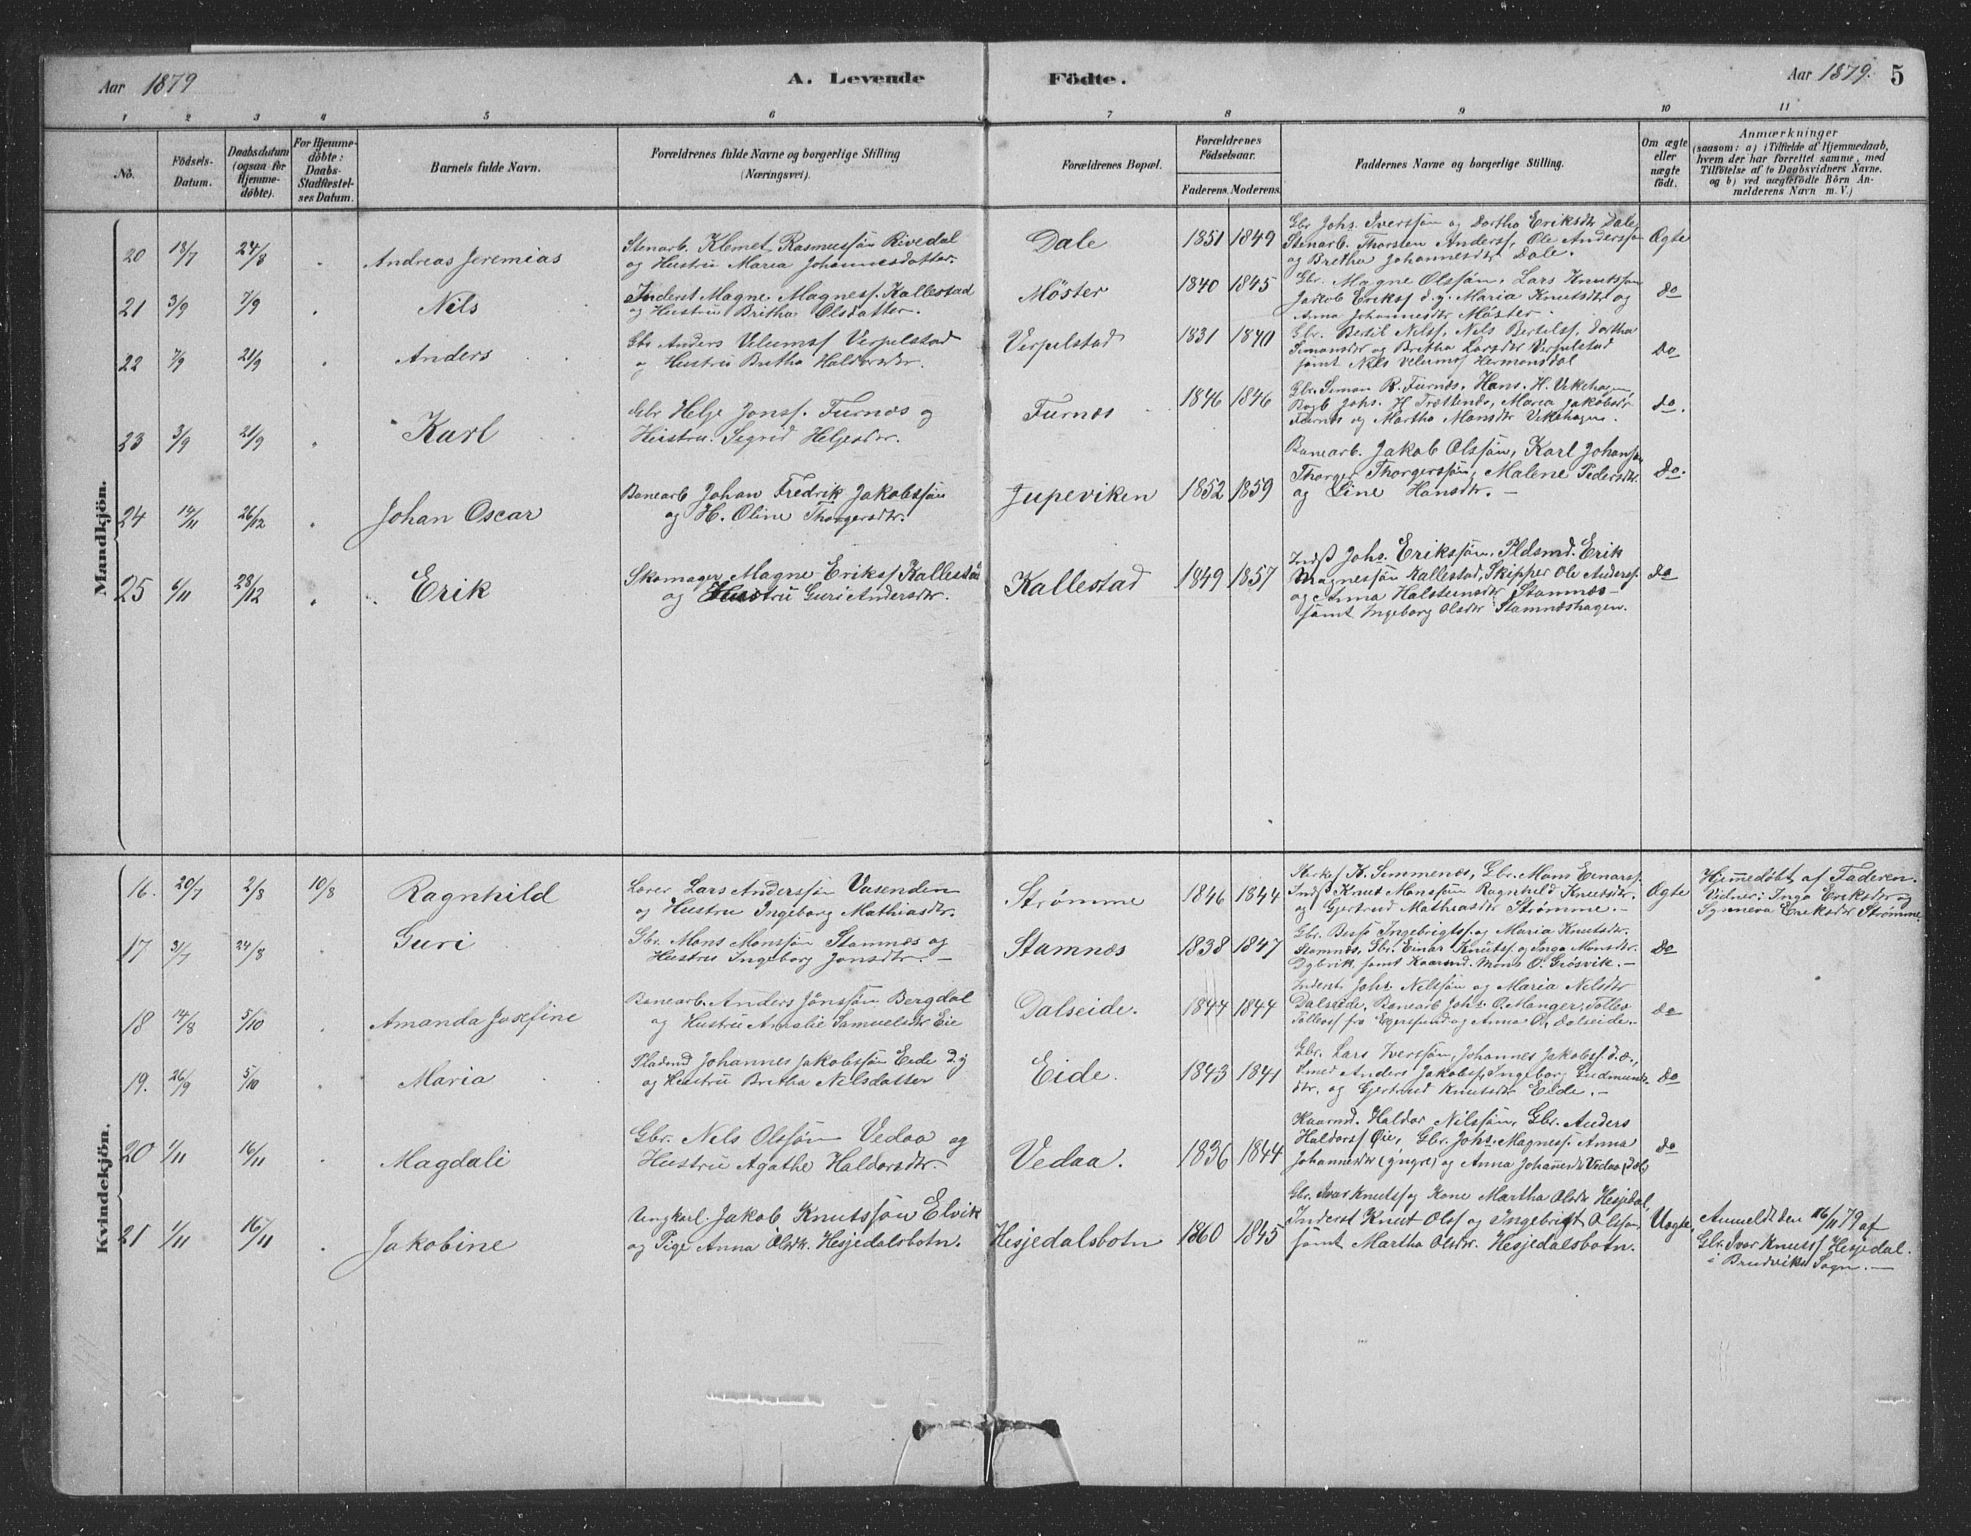 Aar 1879 A. Levende Födte. Aar 1879. 5
1 2 3 4 5 6 7 8 9 10 11
No.
Födsels-Datum.
Daabsdatum (ogsaa for Hjemme-döbte).
For Hjemme-döbte: Daabs-Stadfæstel-ses Datum.
Barnets fulde Navn.
Forældrenes fulde Navne og borgerlige Stilling (Næringsvei).
Forældrenes Bopæl.
Forældrenes Födselsaar.
Faderens. Moderens.
Faddernes Navne og borgerlige Stilling.
Om ægte eller uægte födt.
Anmærkninger
(saasom: a) i Tilfælde af Hjemmedaab,
hvem der har forrettet samme, med
Tilföielse af to Daabsvidners Navne.
og b) ved uægtefödte Börn An-
melderens Navn m. V.)
Mandkjön.
20 18/7 24/8 Andreas Jeremias
Stenarb. Klemet Rasmussøn Rivedal
og Hustru Maria Johannesdatter.
Dale 1851 1849
Gbr Johs. Iverssøn og Dortha Eriksdtr Dale,
Stenarb. Thorsten Anderss, Ole Anderssøn
og Bretha Johannesdtr Dale.
Ægte
21 3/9 7/9 Nils
Inderst Magne Magness. Kallestad
og Hustru Britha Olsdatter.
Møster 1840 1845
Gbr. Magne Olssøn, Lars Knutssøn
Jakob Erikss d.y. Maria Knutsdtr og
Anna Johannesdtr Møster.
do
22 7/9 21/9 Anders
Gbr Anders Velumss Verpelstad
og Hustru Britha Haldorsdtr.
Verpelstad 1831 1840
Gbr. Bertil Nilss, Nils Bertelss, Dortha
Simonsdtr og Britha Larsdtr Verpelstad
samt Nils Velumss Hermansdal
do
23 3/9 21/9 Karl
Gbr Helje Jonss. Furnæs og
Hustru Segrid Heljesdtr.
Furnæs 1846 1846
Gbr. Simon R. Furnæs, Hans H. Vikehagen,
Johs. H. Trættenæs, Maria Jakobsdtr
Furnæs og Martha Monsdtr Vikehagen.
do.
24 14/11 26/12 Johan Oscar
Banearb Johan Fredrik Jakobssøn
og H. Oline Thorgersdtr.
Jupeviken 1852 1859
Banearb. Jakob Olssøn, Karl Johanson
Thorger Thorgerssøn, Malene Pedersdtr.
og Line Hansdtr. —
do.
25 6/11 28/12 Erik
Skomager Magne Erikss Kallestad
og Hustru Guri Andersdtr.
Kallestad 1849 1857
Indst Johs. Erikssøn, Pldsmd. Erik
Magnessøn Kallestad, Skipper Ole Anderss.
og Anna Halsteinsdtr Stamnæs
samt Ingeborg Olsdtr Stamnæshagen.
do
Kvindekjön.
16. 20/7 2/8 10/8 Ragnhild
Lærer Lars Anderssøn Vasenden
og Hustru Ingeborg Mathiasdtr.
Strømme 1846 1844
K. Simmenæs, Gbr. Mons Einarss
Indst Knut Monssøn Ragnhild Knutsdtr.
og Gjertrud Mathiasdtr Strømme. —
Ægte
Hjemmedøbt af Faderen.
Vidner: Inga Eriksdtr og
Synneva Eriksdtr Strømme.
17 31/7 24/8 Guri
Gbr. Mons Monssøn Stamnæs og
Hustru Ingeborg Jonsdtr. —
Stamnæs 1838 1847
Gbr. Ingebrigtss. og Maria Knutsdtr.
Stamnæs, Gbr. Einar Knutss. og Inga Monsdtr.
Dybvik, samt Kaarmd. Mons O. Grøsvik. —
do
18 14/8 5/10 Amanda Josefine
Banearb. Anders Jonssøn Bergdal
og Hustru Amalie Samuelsdtr Eie
Dalseide. 1844 1844
Inderst Johs. Nilssøn og Maria Nilsdtr
Dalseide, Banearb Johs. O. Manger,
fra Egersund og Anna O. Dalseide.
do
19. 26/9 5/10 Maria
Pladsmd Johannes Jakobssøn Eide d.y
og Hustru Britha Nilsdatter
Eide. 1843 1841
Gbr. Lars Iverssøn, Johannes Jakobss. d.æ.,
Smed Anders Jakobss, Ingeborg Gudmunds-
dtr. og Gjertrud Knutsdtr Eide. —
do
20 1/11 16/11 Magdali
Gbr. Nils Olssøn Vedaa og
Hustru Agathe Haldorsdtr.
Vedaa. 1836 1844
Kaarmd. Haldor Nilssøn, Gbr. Anders
Haldorss Øie, Gbr. Johs. Magness. Anna
Johannesdtr (yngre) og Anna Johannesdtr Vedaa
do
21 1/11 16/11 Jakobine
Ungkarl. Jakob Knutssøn Elvik
og Pige Anna Olsdtr. Hesjedalsbotn.
Hesjedalsbotn 1860 1845
Gbr. Ivar Knutss og Kone Martha Olsdtr Hesjedal,
Inderst Knut Olss og Ingebrigt Olssøn
samt Martha Olsdtr. Hesjedalsbotn.
Uægte,
Anmeldt den 16/11 79 af
Gbr. Ivar Knutss Hesjedal.
i Bruvik Sogn. —